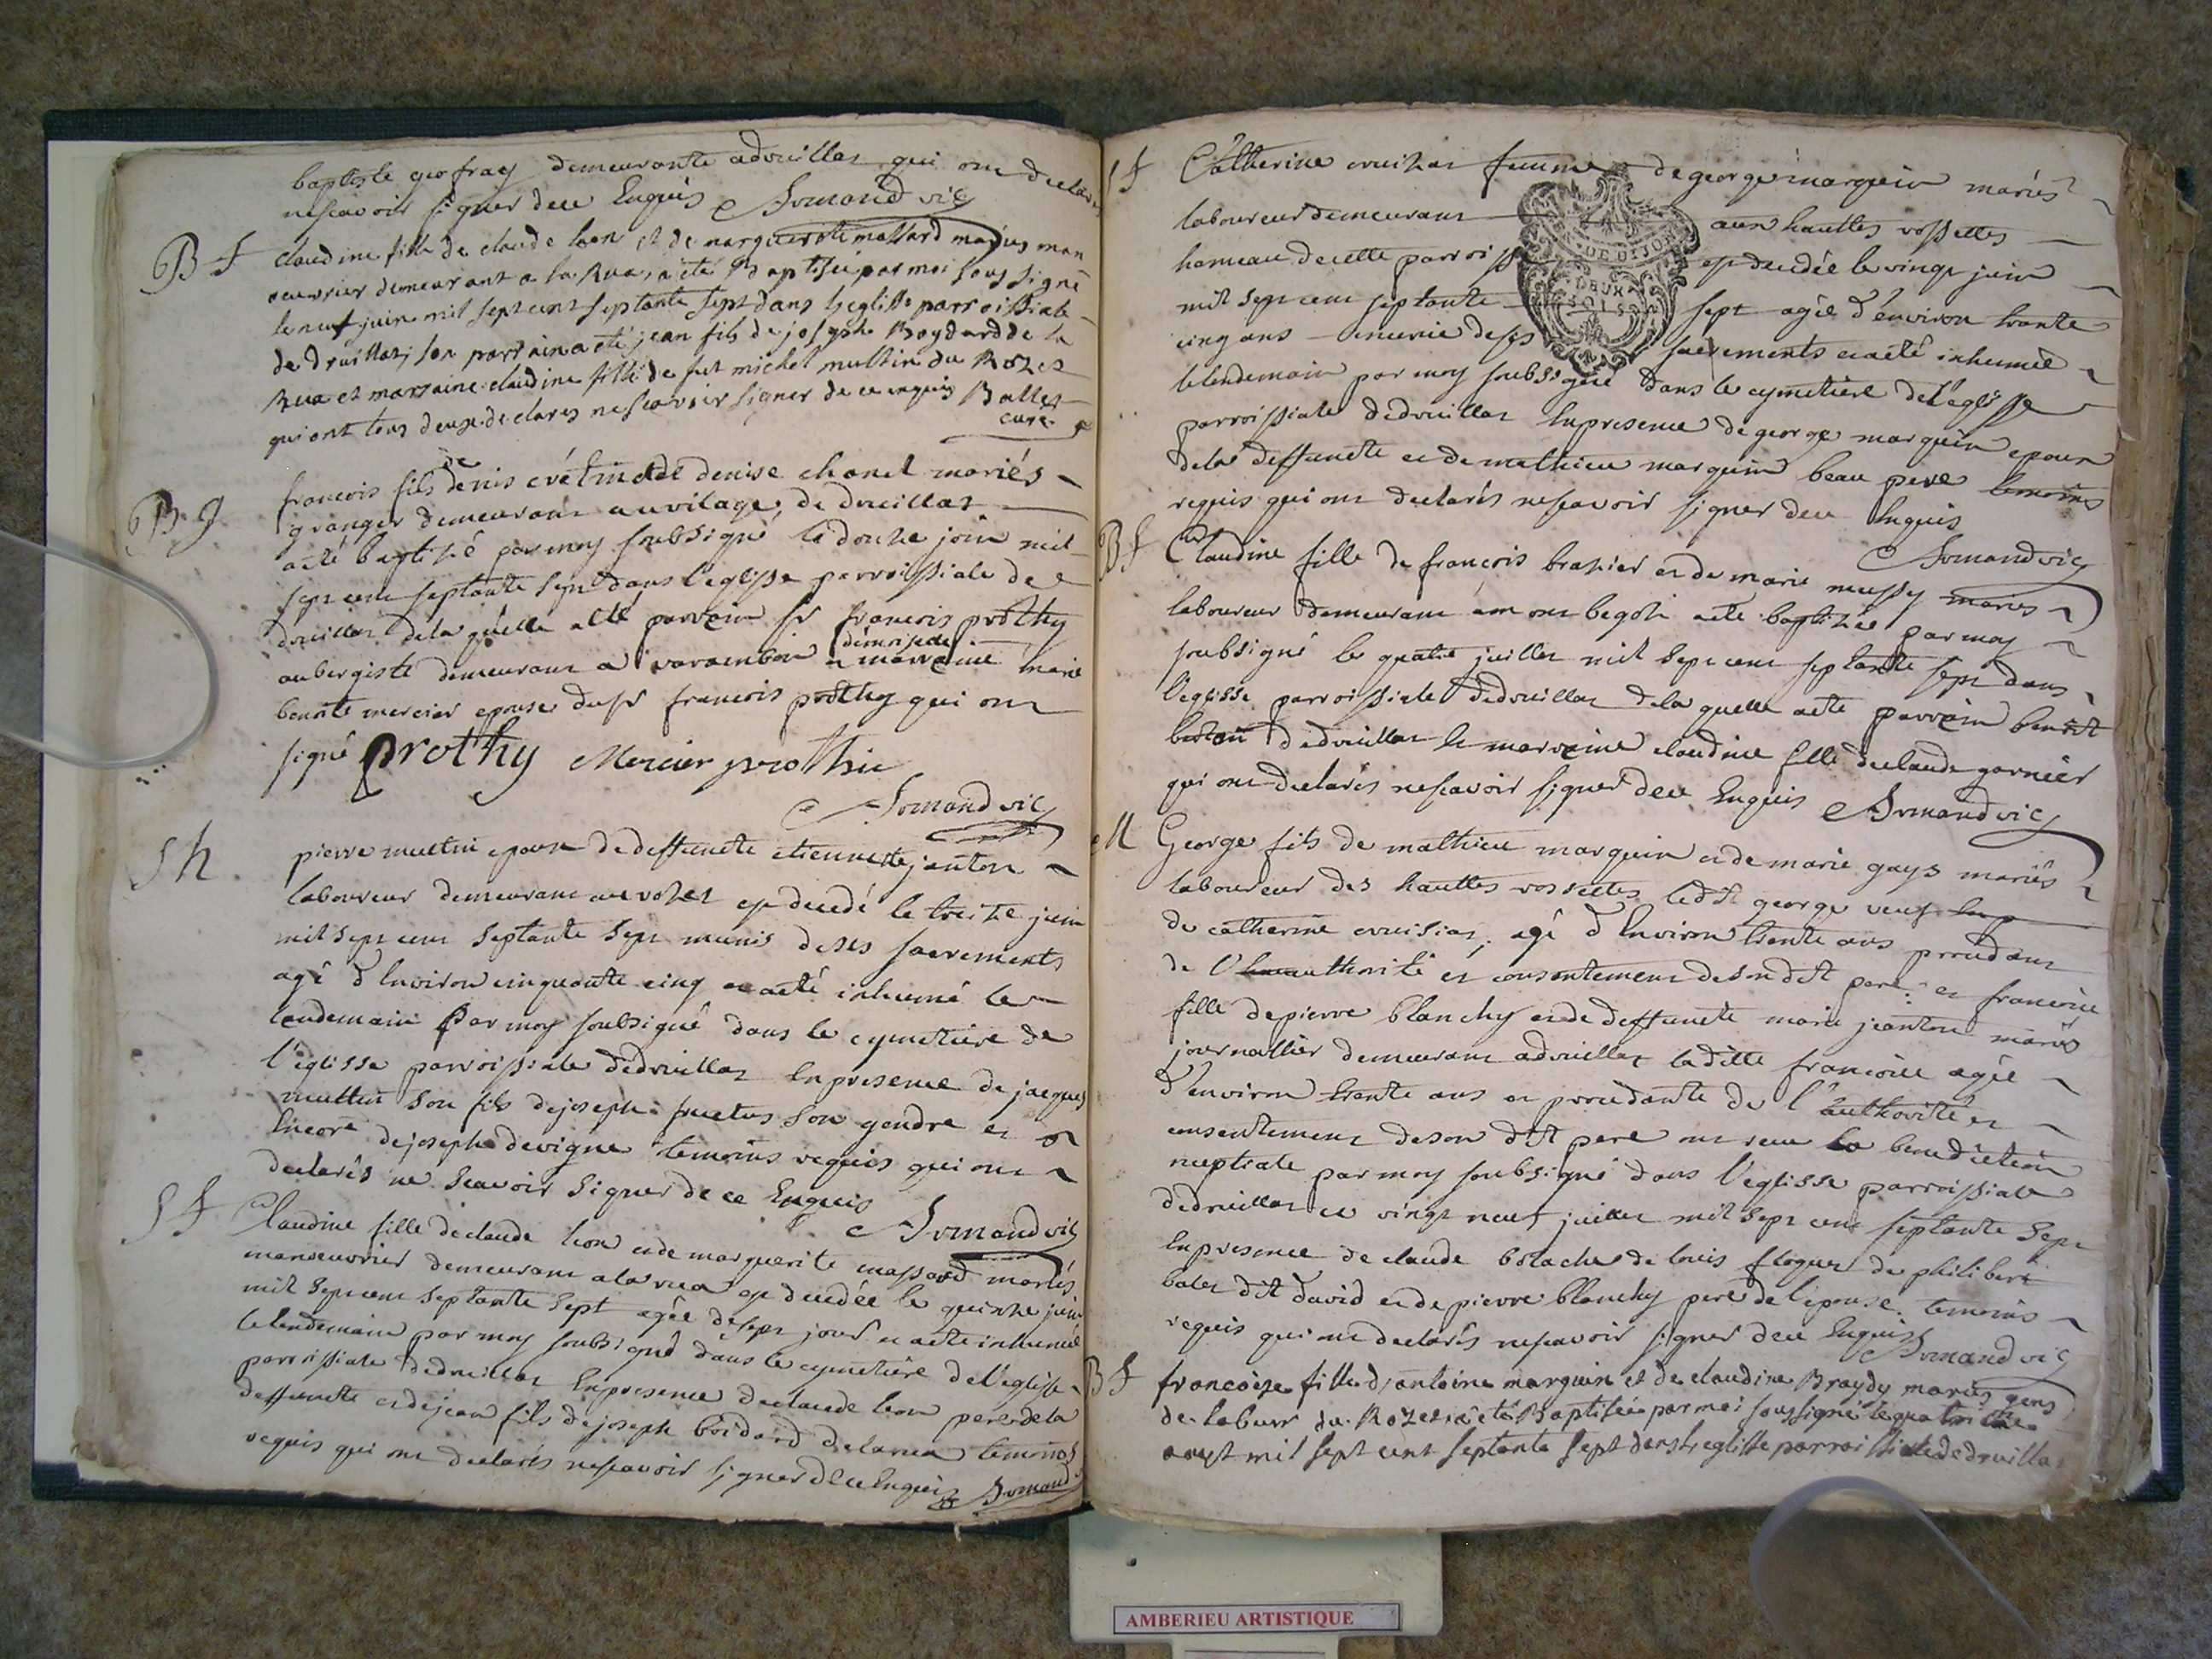 baptiste geofray demeurante adruillat qui ont declares
nescavoir signer dece Enquis Armand vic
B F
claudine fille de claude laon et de marguerite massard mariés man
oeuvrier demeurant a la Rua, a eté Baptisée par moi soussigné
le neuf juin mil sept cent septante sept dans l'eglisse parroissiale
de druillat; son parrain a eté jean fils de joseph Boydard de la
Rua et marraine claudine fille de fut michel multin du Rozet
qui ont tous deux declares nescavoir signer de ce enquis Ballet
curé
B. g.
francois fils de denis crétin et de denise chanel mariés
granger demeurant au vilage de druillat
a eté baptisé par moy soubsigné le douze juin mil
sept cent septante sept dans l'eglisse parroissiale de
druillat de la quelle a eté parrain sr francois prothy
aubergiste demeurant a varambon et marraine demoiselle marie
benoite mercier epouse du sr francois prothy qui ont
signé prothy Mercier prothie
Armand vic
S h.
pierre multin epoux de deffuncte etiennette janton
laboureur demeurant au rozet est decedé le treize juin
mil sept cent septante sept munis de ses sacrements
agé d'Environ cinquante cinq et a eté inhumé le
lendemain par moy soubsigné dans le cymetière de
l'eglisse parroissiale dedruillat En presence de jacques
multin son fils de joseph fructus son gendre et
Encore de joseph devigne temoins requis qui ont
declarés ne scavoir signer de ce Enquis
Armand vic
S F
Claudine fille de claude lion et de marguerite massard mariés
manoeuvrier demeurant a la rua est decedée le quinze juin
mil sept cent septante sept agée de sept jours et a eté inhumée
le lendemain par moy soubsigné dans le cymetière de l'eglisse
parroissiale dedruillat En presence de claude lion pere de la
deffuncte et de jean fils de joseph boidard de la rua temoins
requis qui ont declarés nescavoir signer de ce Enquis Armand
S F
Catherine cruizat femme de george marquin mariés
laboureur demeurant aux hauttes vossettes
hameau de cette parroiss est decedée le vingt juin
mil sept cent septante sept agée d'environ trante
cinq ans munie de ses sacrements et a eté inhumée
le lendemain par moy soubsigné dans le cymetière de l'eglisse
parroissiale dedruillat En presence de george marquin epoux
de la deffuncte et de mathieu marquin beau pere temoins
requis qui ont declarés nescavoir signer de ce Enquis
Armand vic
B F
Claudine fille de francois brasier et de marie mussy mariés
laboureur demeurant a mont begoz a eté baptizée par moy
soubsigné le quatre juillet mil sept cent septante sept dans
l'eglisse parroissiale dedruillat de la quelle a eté parrain benoit
dedruillat et marraine claudine fille de claude garnier
qui ont declarés nescavoir signer de ce Enquis Armand vic
M
George fils de mathieu marquin et de marie gays mariés
laboureur des hauttes vossettes ledit george veuf
de catherine cruisiat, agé d'Environ trente ans procedant
de l'authorité et consentement de son dit pere: et francoise
fille de pierre blanchy et de deffuncte marie jeanton mariés
journallier demeurant adruillat la ditte francoise agée
d'environ trente ans et procedante de l'authorité et
consentement de son dit pere ont recu la benediction
nuptiale par moy soubsigné dans l'eglisse parroissiale
dedruillat ce vingt neuf juillet mil sept cent septante sept
En presence de claude bolache de louis floquet de philibert
balet dit david et de pierre blanchy pere de l'epouse. temoins
requis qui ont declarés nescavoir signer de ce Enquis
Armand vic
B F
francoise fille d'antoine marquin et de claudine Braydy mariés gens
de labeur du Rozet a eté Baptisée par moi soussigné le quatrieme
aoust mil sept cent septante sept dans l'eglisse parroissialle de druillat
GEN. DE DIJON
DEUX
SOLS
AMBERIEU ARTISTIQUE